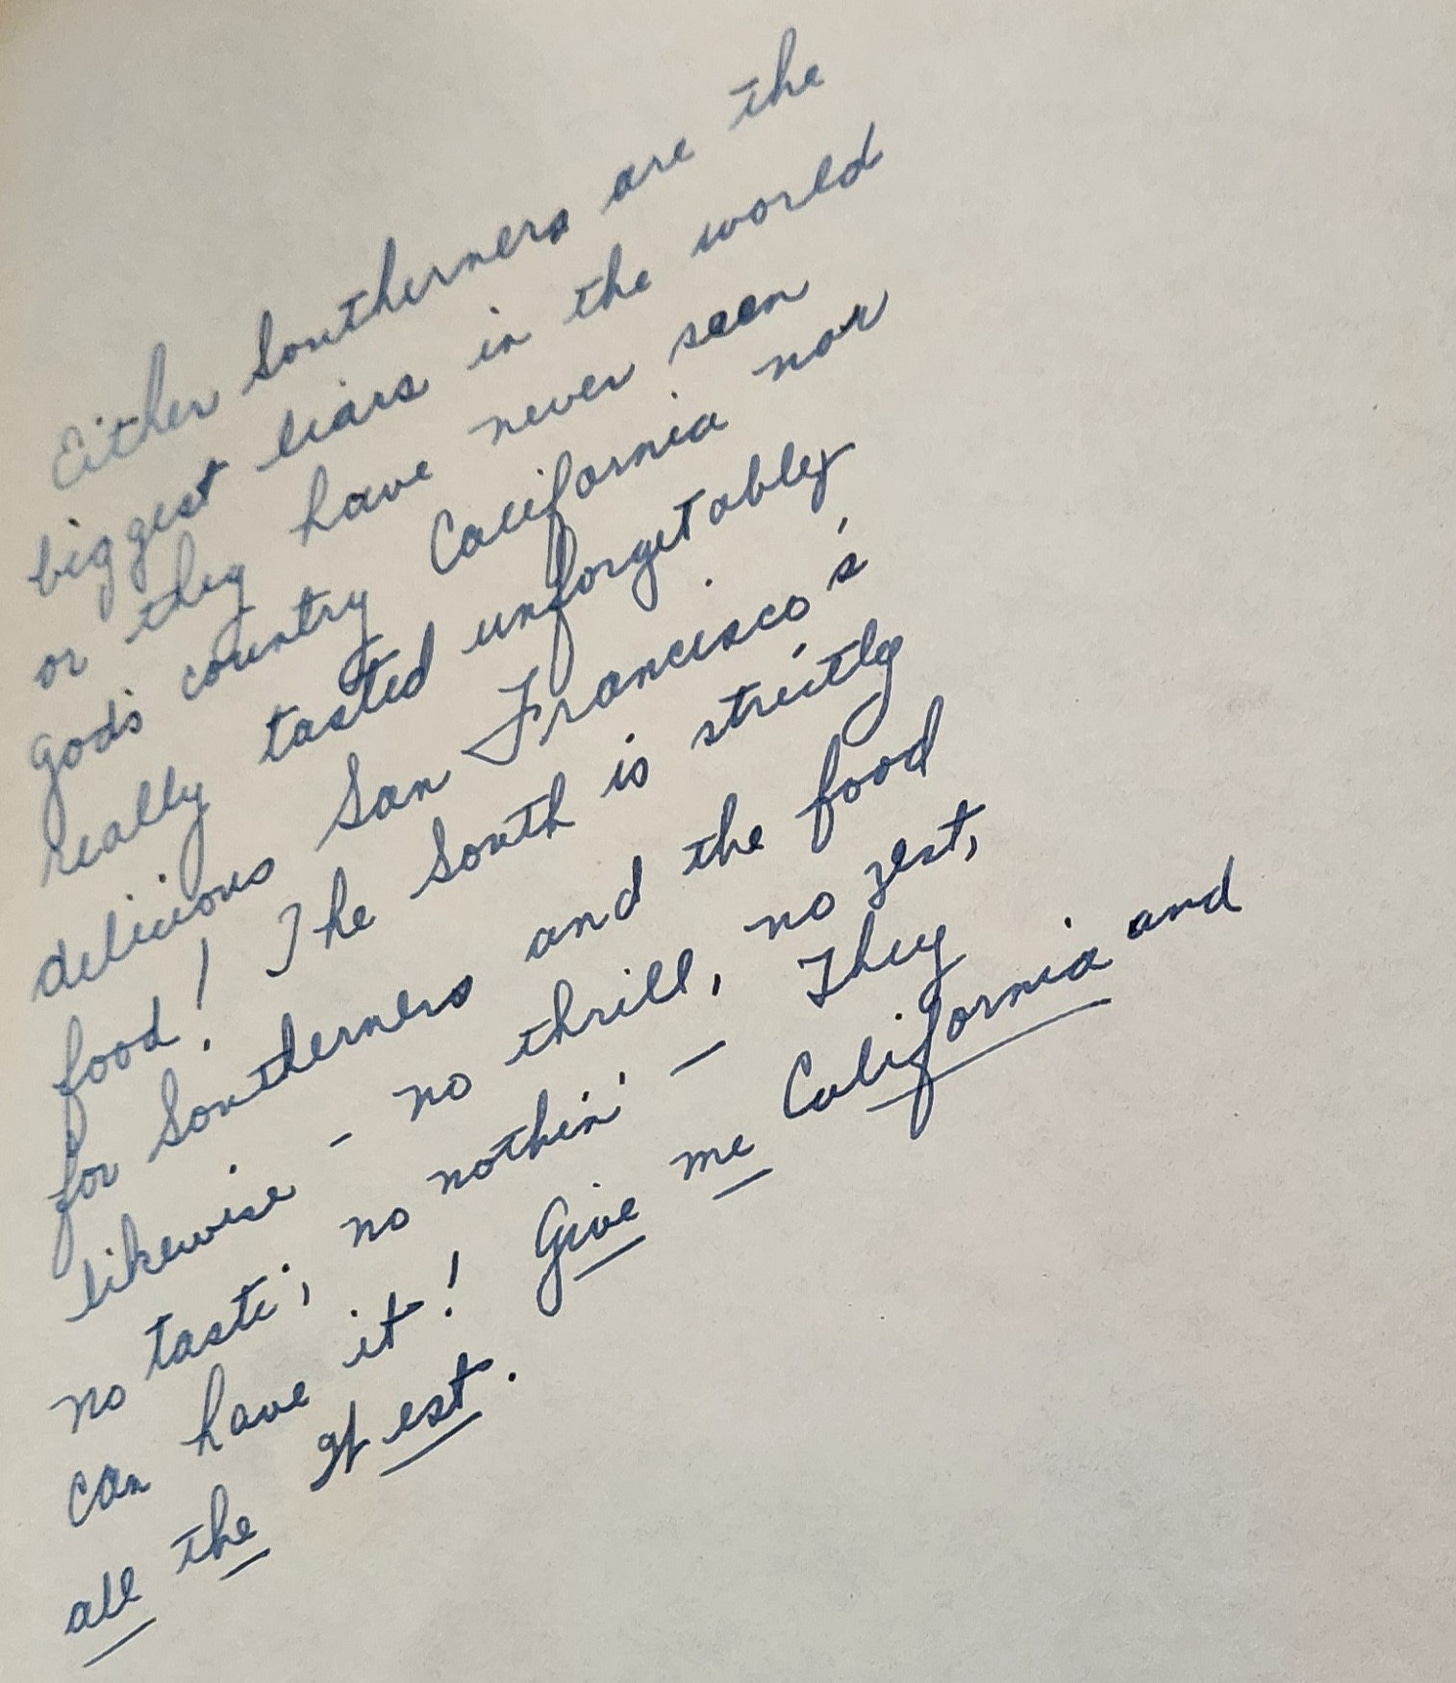 Either Southerners are the
biggest liars in the world
or they have never seen
gods country California nor
really tasted unforgetably
delicious San Francisco's
food! The South is strictly
for Southerners and the food
likewise - no thrill, no zest,
no taste, no nothin' - They
can have it! Give me California and
all the West.